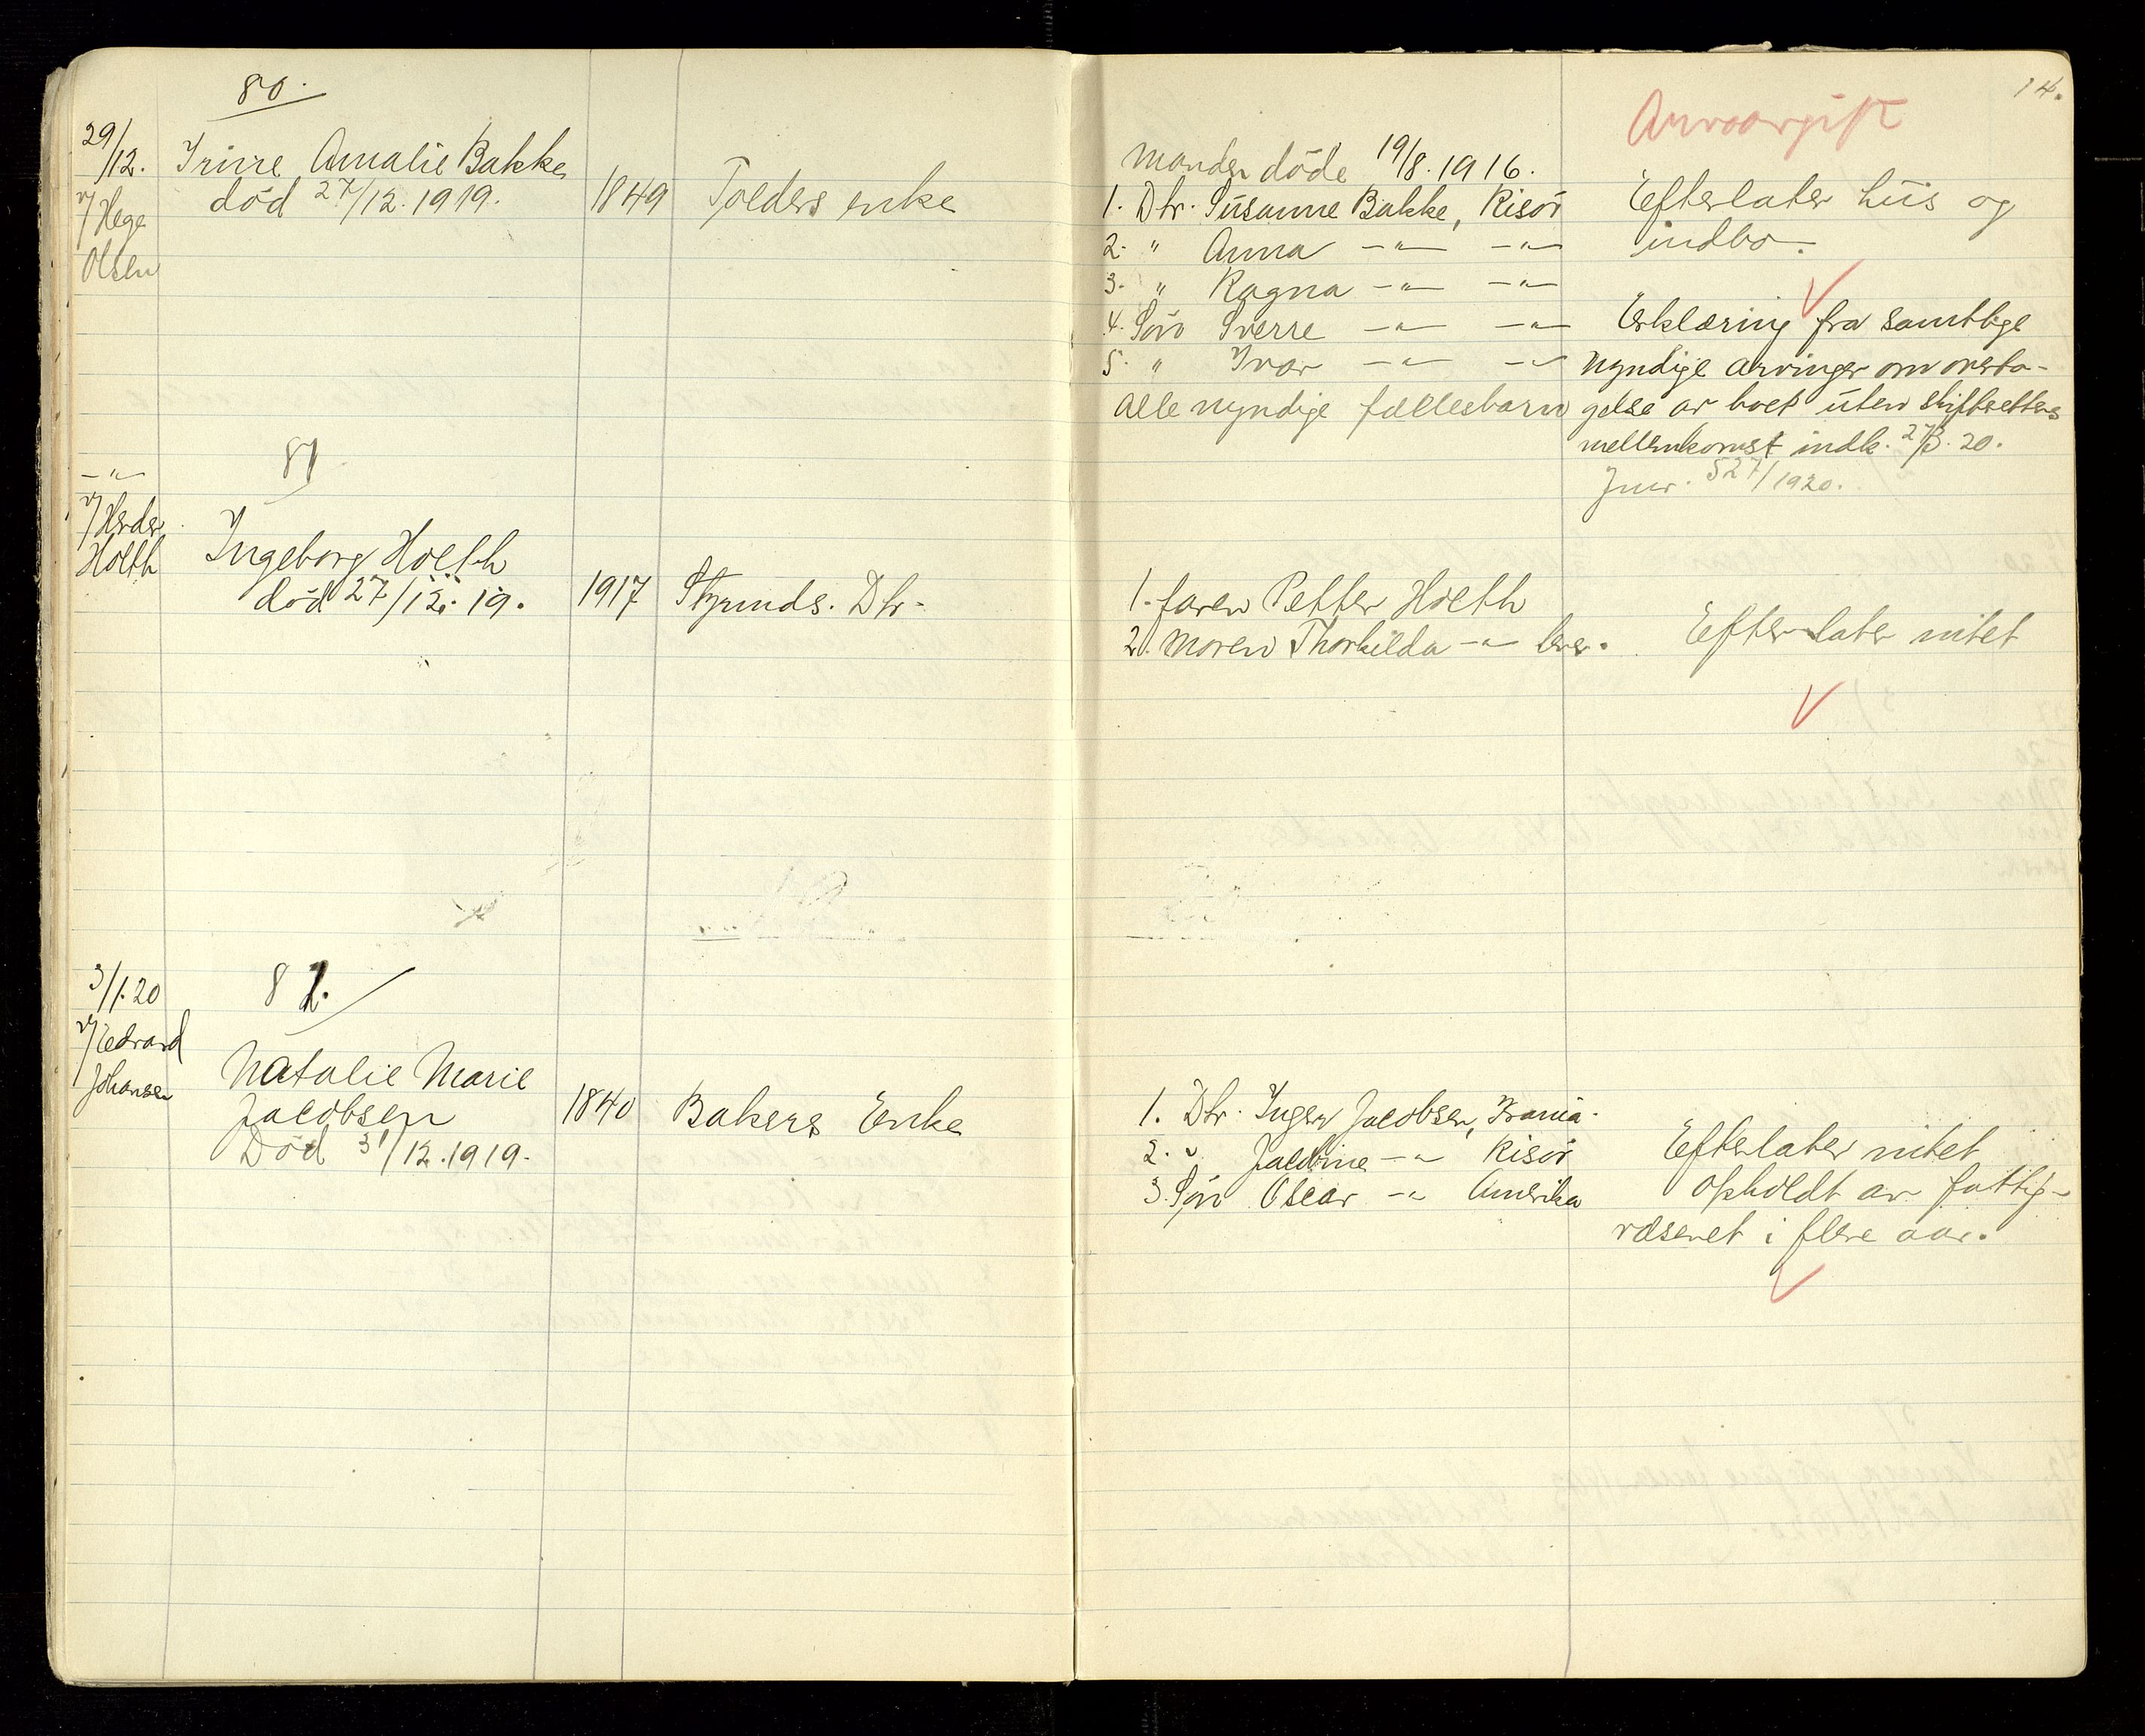 14.
80.
29/12.
v/ Hege
Olsen
Trine Amalie Bakke
död 27/12.1919.
1849
Tolders enke
Manden döde 19/8.1916.
1. Dtr. Susanne Bakke, Risör
2. " Anna —"— —"—
3. " Ragna —"— —"—
4. Sön Sverre —"— —"—
5. " Ivar —"— —"—
Alle myndige fællesbarn
Arveavgift
Efterlater hus og
indbo.
Erklæring fra samtlige
myndige arvinger om overta-
gelse av boet uten skifterettens
mellemkomst indk. 27/3.20.
Jnr. 527/1920.
—"—
v/
Holth
81
Ingeborg Holth
död 27/12.19.
1917
Styrmds. Dtr.
1. faren Petter Holth
2. Moren Thorhilda —"— lever.
Efterlater intet
3/1.20
v/ Edvard
Johansen
82.
Natalie Marie
Jacobsen
Död 31/12.1919.
1840
Bakers Enke
1. Dtr. Inger Jacobsen,
2. " Jacobine —"— Risör
3. Sön Oscar —"— Amerika
Efterlater intet
Opholdt av fattig-
væsenet i flere aar.